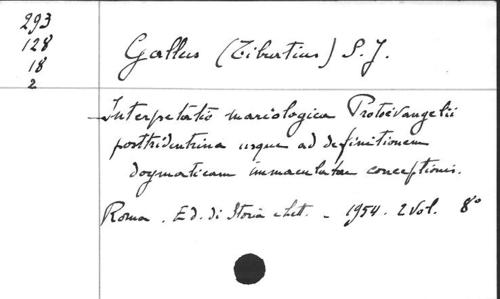 293
128
18
2
Gallus (Tiburtius) S. J.
Interpretatio mariologica Protoevangelii
posttridentrina usque ad definitionem
dogmaticam immaculatae conceptionis.
Roma. Ed. di Storia e lett. - 1954. 2 vol. 8°